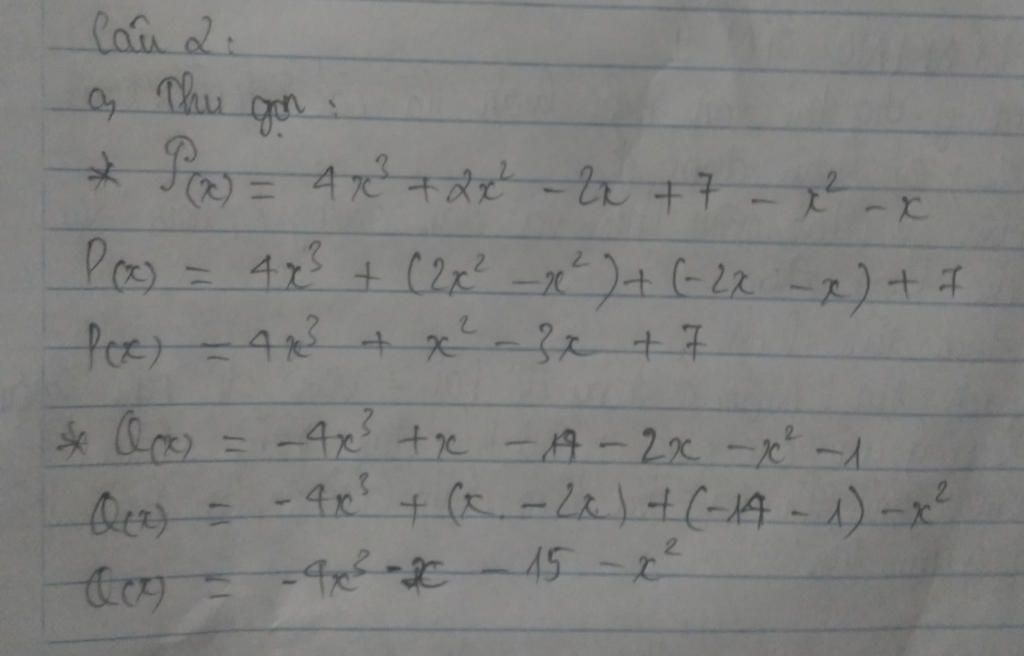 Câu 2:
a, Thu gọn:
* P(x) = 4x³ + 2x² - 2x + 7 - x² - x
P(x) = 4x³ + (2x² - x²) + (-2x - x) + 7
P(x) = 4x³ + x² - 3x + 7
* Q(x) = -4x³ + x - 14 - 2x - x² - 1
Q(x) = -4x³ + (x - 2x) + (-14 - 1) - x²
Q(x) = -4x³ - x - 15 - x²